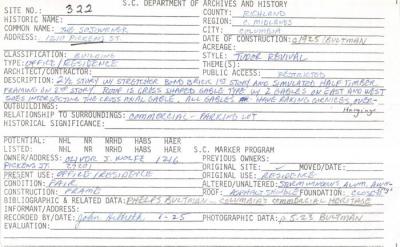 S.C. DEPARTMENT OF ARCHIVES AND HISTORY
SITE NO.: 322 COUNTY: RICHLAND
HISTORIC NAME: REGION: C. MIDLANDS
COMMON NAME: THE SOJOURNER CITY: COLUMBIA
ADDRESS: 1210 PICKENS ST. DATE OF CONSTRUCTION: 1925 BULTMAN
ACREAGE:
CLASSIFICATION: BUILDING STYLE: TUDOR REVIVAL
TYPE: OFFICE/RESIDENCE THEME(S):
ARCHITECT/CONTRACTOR: PUBLIC ACCESS: RESTRICTED
DESCRIPTION: 2½ STORY W/ STRETCHER BOND BRICK 1ST STORY AND SIMULATED HALF TIMBER
FRAMING ON 2ND STORY. ROOF IS CROSS GABLE TYPE W/ 2 GABLES ON EAST AND WEST
SIDES INTERSECTING THE CROSS AXIAL GABLE. ALL GABLES HAVE RAKING CORNICES, OVER-
OUTBUILDINGS: Hangings
RELATIONSHIP TO SURROUNDINGS: COMMERCIAL - PARKING LOT
HISTORICAL SIGNIFICANCE:
POTENTIAL: NHL NR NRHD HABS HAER S.C. MARKER PROGRAM
LISTED: NHL NR NRHD HABS HAER PREVIOUS OWNERS:
OWNER/ADDRESS: OLIVER J. WOLFE 1216
PICKENS ST. 29201 ORIGINAL SITE: ✓ MOVED/DATE:
PRESENT USE: OFFICE/RESIDENCE ORIGINAL USE: RESIDENCE
CONDITION: FAIR ALTERED/UNALTERED: STORM WINDOWS ALUM. AWN.
CONSTRUCTION: FRAME ROOF: ASPHALT SHINGLE FOUNDATION: CLOSED
BIBLIOGRAPHIC & RELATED DATA: PHELPS BULTMAN - COLUMBIA'S COMMERCIAL HERITAGE
INFORMANT/ADDRESS:
RECORDED BY/DATE: John 1-25 PHOTOGRAPHIC DATA: 5.23 BULTMAN